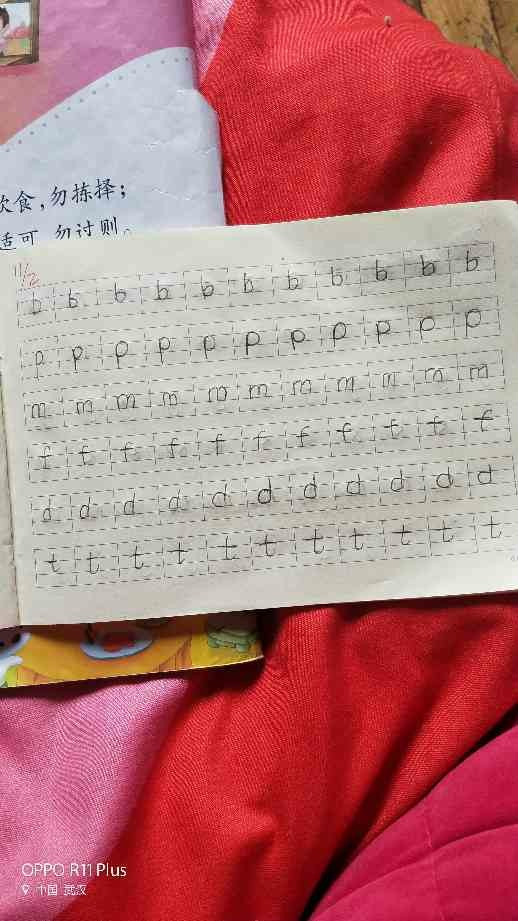 饮食,勿拣择;
适可,勿过则。
11/2
b b b b b b b b b b b
p p p p p p p p p p p
m m m m m m m m m m m
f f f f f f f f f f f
d d d d d d d d d d d
t t t t t t t t t t t
OPPO R11 Plus
中国 武汉